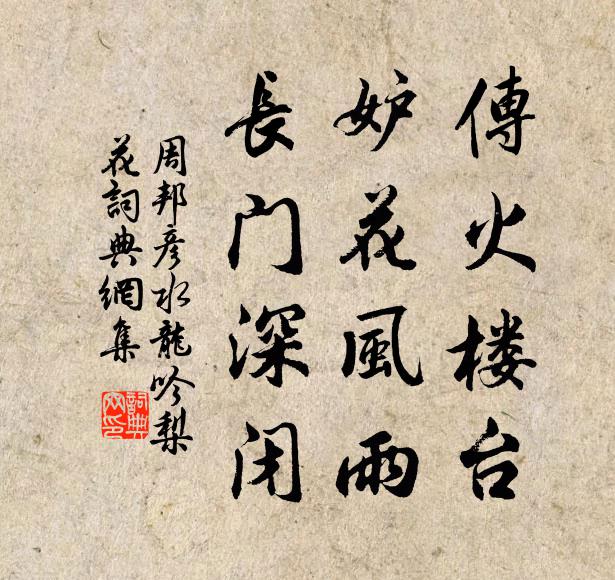 傳火楼台
妒花風雨
長门深闭
周邦彦水龍吟梨
花詞典網集
詞典
网印